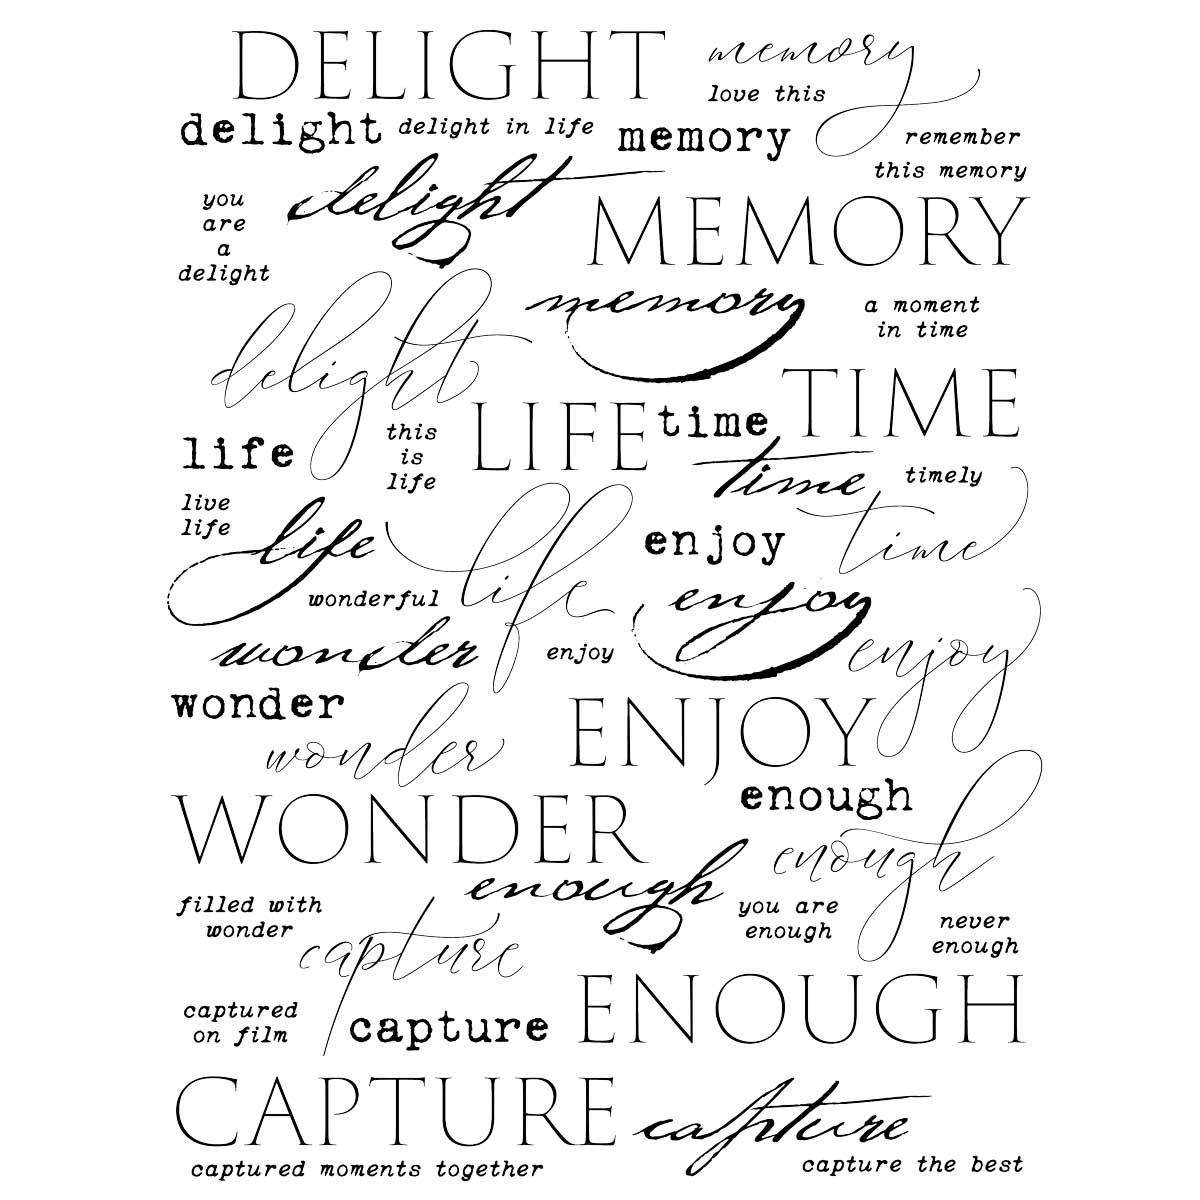 DELIGHT
memory
love this
delight
delight in life
memory
remember
this memory
delight
you
are
a
delight
MEMORY
memory
a moment
in time
delight
TIME
LIFE
time
this
is
life
life
time
timely
live
life
life
life
enjoy
time
wonderful
enjoy
wonder
enjoy
enjoy
wonder
ENJOY
wonder
enough
WONDER
enough
enough
filled with
wonder
you are
enough
never
enough
capture
ENOUGH
captured
on film
capture
CAPTURE
capture
captured moments together
capture the best